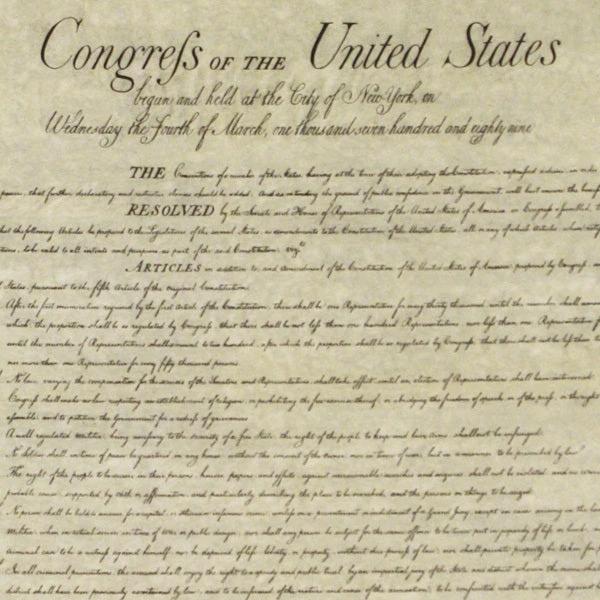 Congreſs OF THE United States
begun and held at the City of New-York, on
Wednesday the Fourth of March, one thousand seven hundred and eighty nine
THE Conventions of a number of the States, having at the time of their adopting the Constitution, expressed a desire, in order
powers, that further declaratory and restrictive clauses should be added: And as extending the ground of public confidence in the Government, will best ensure the
RESOLVED by the Senate and House of Representatives of the United States of America, in Congreſs aſsembled,
that the following Articles be proposed to the Legislatures of the several States, as amendments to the Constitution of the United States, all, or any of which Articles, when
to be valid to all intents and purposes, as part of the said Constitution; vizt.
ARTICLES in addition to, and Amendment of the Constitution of the United States of America, proposed by Congreſs,
States, pursuant to the fifth Article of the original Constitution.
After the first enumeration required by the first Article of the Constitution, there shall be one Representative for every thirty thousand, until the number shall
which, the proportion shall be so regulated by Congreſs, that there shall be not leſs than one hundred Representatives, nor leſs than one Representative
until the number of Representatives shall amount to two hundred, after which the proportion shall be so regulated by Congreſs, that there shall not be leſs than
nor more than one Representative for every fifty thousand persons.
No law, varying the compensation for the services of the Senators and Representatives, shall take effect, until an election of Representatives shall have intervened.
Congreſs shall make no law respecting an establishment of religion, or prohibiting the free exercise thereof; or abridging the freedom of speech, or of the preſs; or the right
aſsemble, and to petition the Government for a redreſs of grievances.
A well regulated Militia, being neceſsary to the security of a free State, the right of the people to keep and bear Arms, shall not be infringed.
No Soldier shall, in time of peace be quartered in any house, without the consent of the owner, nor in time of war, but in a manner to be prescribed by law.
The right of the people to be secure in their persons, houses, papers, and effects, against unreasonable searches and seizures, shall not be violated, and no
probable cause, supported by oath or affirmation, and particularly describing the place to be searched, and the persons or things to be seized.
No person shall be held to answer for a capital, or otherwise infamous crime, unleſs on a presentment or indictment of a Grand Jury, except in cases arising in the
Militia, when in actual service in time of War or public danger; nor shall any person be subject for the same offence to be twice put in jeopardy of life or
criminal case to be a witneſs against himself, nor be deprived of life, liberty, or property, without due proceſs of law; nor shall private property be taken for
In all criminal prosecutions, the accused shall enjoy the right to a speedy and public trial, by an impartial jury of the State and district wherein the crime shall
district shall have been previously ascertained by law, and to be informed of the nature and cause of the accusation; to be confronted with the witneſses against